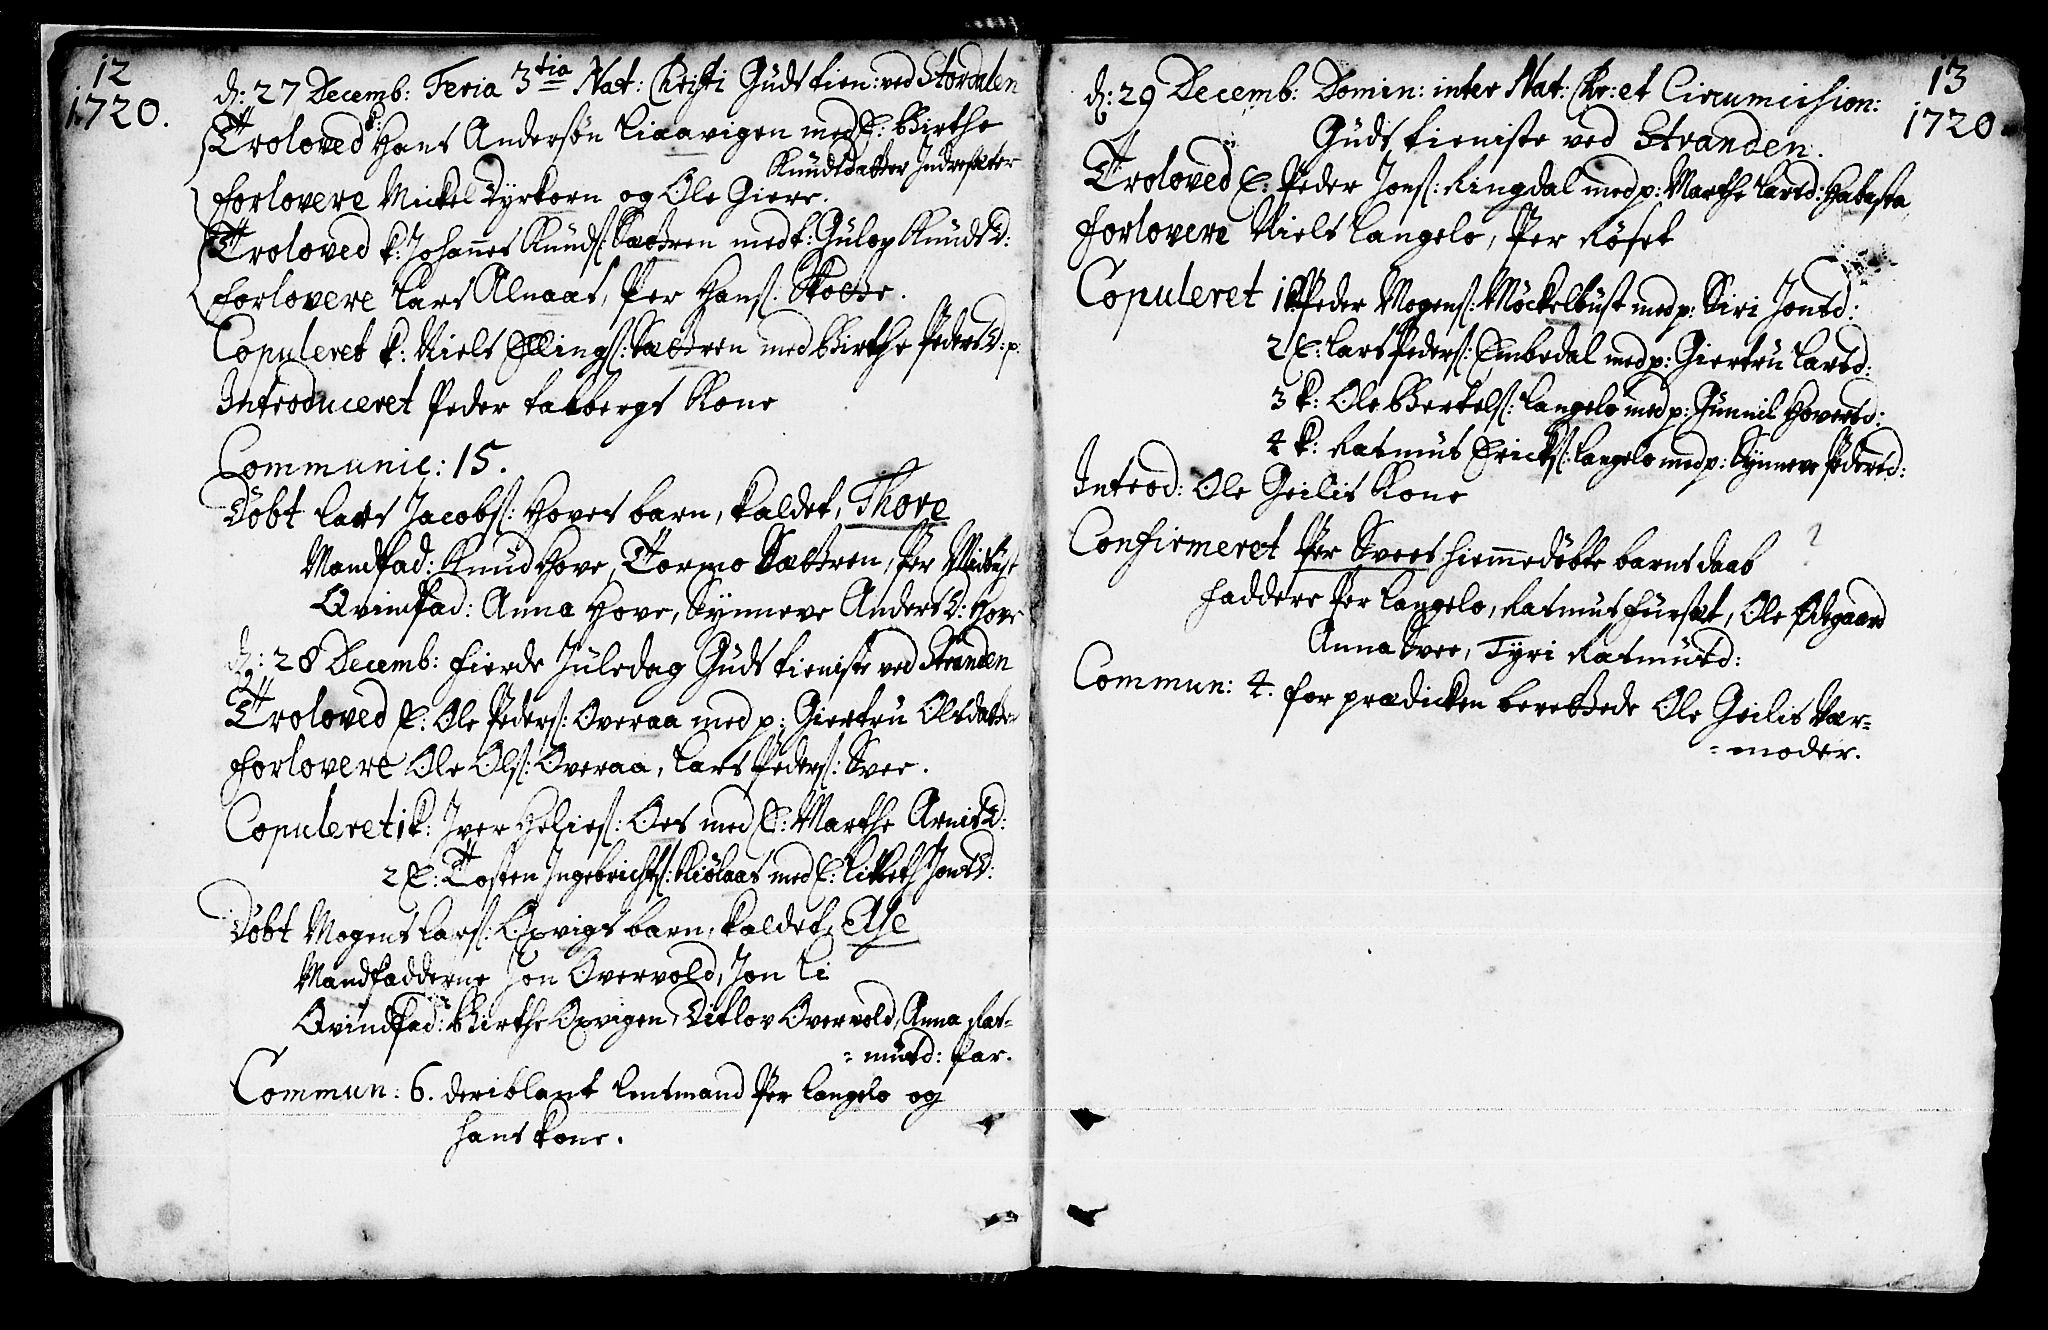 12
1720.
d: 27 Decemb: Feria 3tia Nat: Christi Guds tien: ved Stordalen
Troloved E: Hans Andersøn Liaavigen med E: Birthe
Knudsdatter Indresæter
Forlovere Mickel Dyrkorn og Ole Giere.
Troloved k: Johannes Knuds: Sættren med p: Gulov Knudsd:
Forlovere Lars Alnaas, Per Hans: Skotte.
Copuleret k: Niels Ellings: Sættren med Birthe Pedersd: p.
Introduceret Peder Fabbergs Kone
Communic: 15.
Døbt Lars Jacobs: Hoves barn, kaldet, Thore
Mandfad: Knud Hove, Tormo Sættren, Per
Qvindfad: Anna Hove, Synneve Andersd: Hove
d: 28 Decemb: fierde Juledag Guds tieniste ved Stranden
Troloved E: Ole Peders: Overaa med p: Giertru Olsdatter
Forlovere Ole Ols: Overaa, Lars Peders: Svee.
Copuleret 1 k: Iver Helies: Oes med E: Marthe Arnisd:
2 E: Tosten Ingebrichts: Kiølaas med E: Lisbeth Jonsd:
Døbt Mogens Lars: Oxvigs barn, kaldet, Else
Mandfadderne Jon Overvold, Jon Li
Qvindfad: Birthe Oxvigen, Ditlov Overvold, Anna Ras-
= musd: far.
Commun: 6. deriblant Lensmand Per Langelo og
hans kone.
13
1720
d: 29 Decemb: Domin: inter Nat: Chr: et Circumcision:
Guds tieniste ved Stranden.
Troloved E: Peder Jons: Ringdal med p: Marthe Larsd: Habosta
Forlovere Niels Langelo, Per Røset
Copuleret 1 k: Peder Mogens: Møckelbust med p: Siri Jonsd:
2 E: Lars Peders: Embedal med p: Giertru Larsd:
3 k: Ole Bertels: Langelo med p: Gunnil Hoversd:
4 k: Rasmus Ericks: Langelo med p: Synneve Pedersd:
Introd: Ole Geilis Kone
Confirmeret Per Svees hiemmedøbte barns daab ?
Faddere Per Langelo, Rasmus Fursæt, Ole Ødegaard
Anna Svee, Tyri Rasmusd:
Commun: 4. For prædicken berettede Ole Geilis Vær-
= moder.